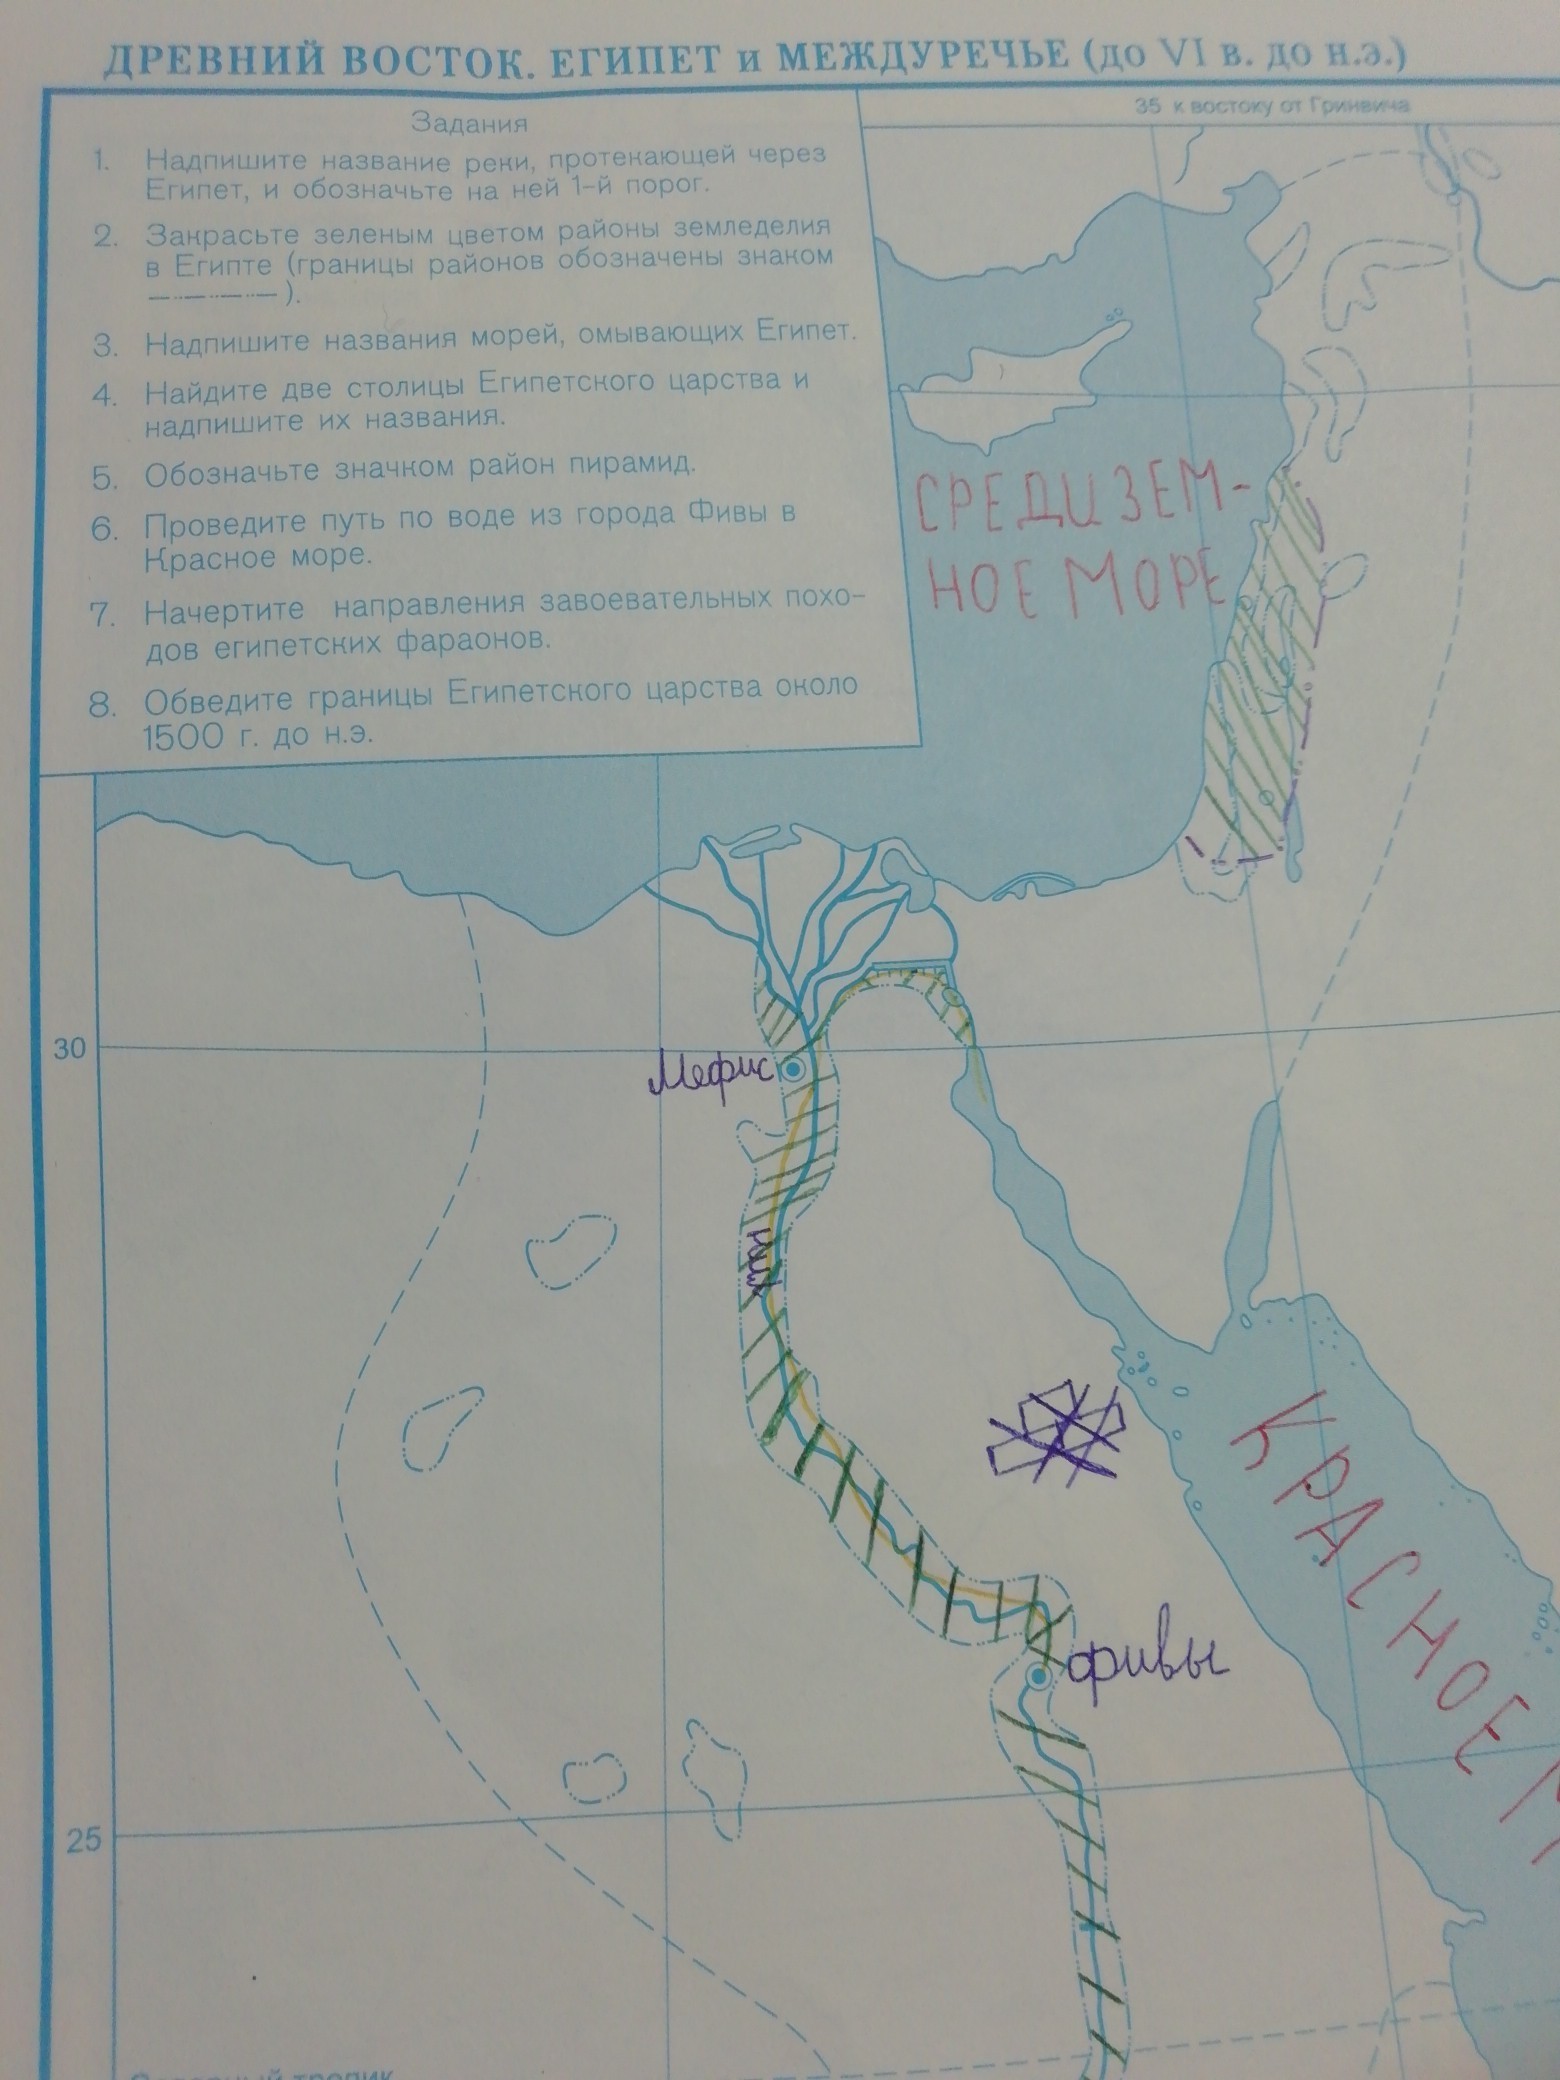 ДРЕВНИЙ ВОСТОК. ЕГИПЕТ и МЕЖДУРЕЧЬЕ (до VI в. до н.э.)
35 к востоку от Гринвича
Задания
1. Надпишите название реки, протекающей через
Египет, и обозначьте на ней 1-й порог.
2. Закрасьте зеленым цветом районы земледелия
в Египте (границы районов обозначены знаком
).
3. Надпишите названия морей, омывающих Египет.
4. Найдите две столицы Египетского царства и
надпишите их названия.
5. Обозначьте значком район пирамид.
6. Проведите путь по воде из города Фивы в
Красное море.
7. Начертите направления завоевательных похо-
дов египетских фараонов.
8. Обведите границы Египетского царства около
1500 г. до н.э.
СРЕДИЗЕМ-
НОЕ МОРЕ
30
Мефис
КРАСНОЕ М
фивы
25
Северный тропик